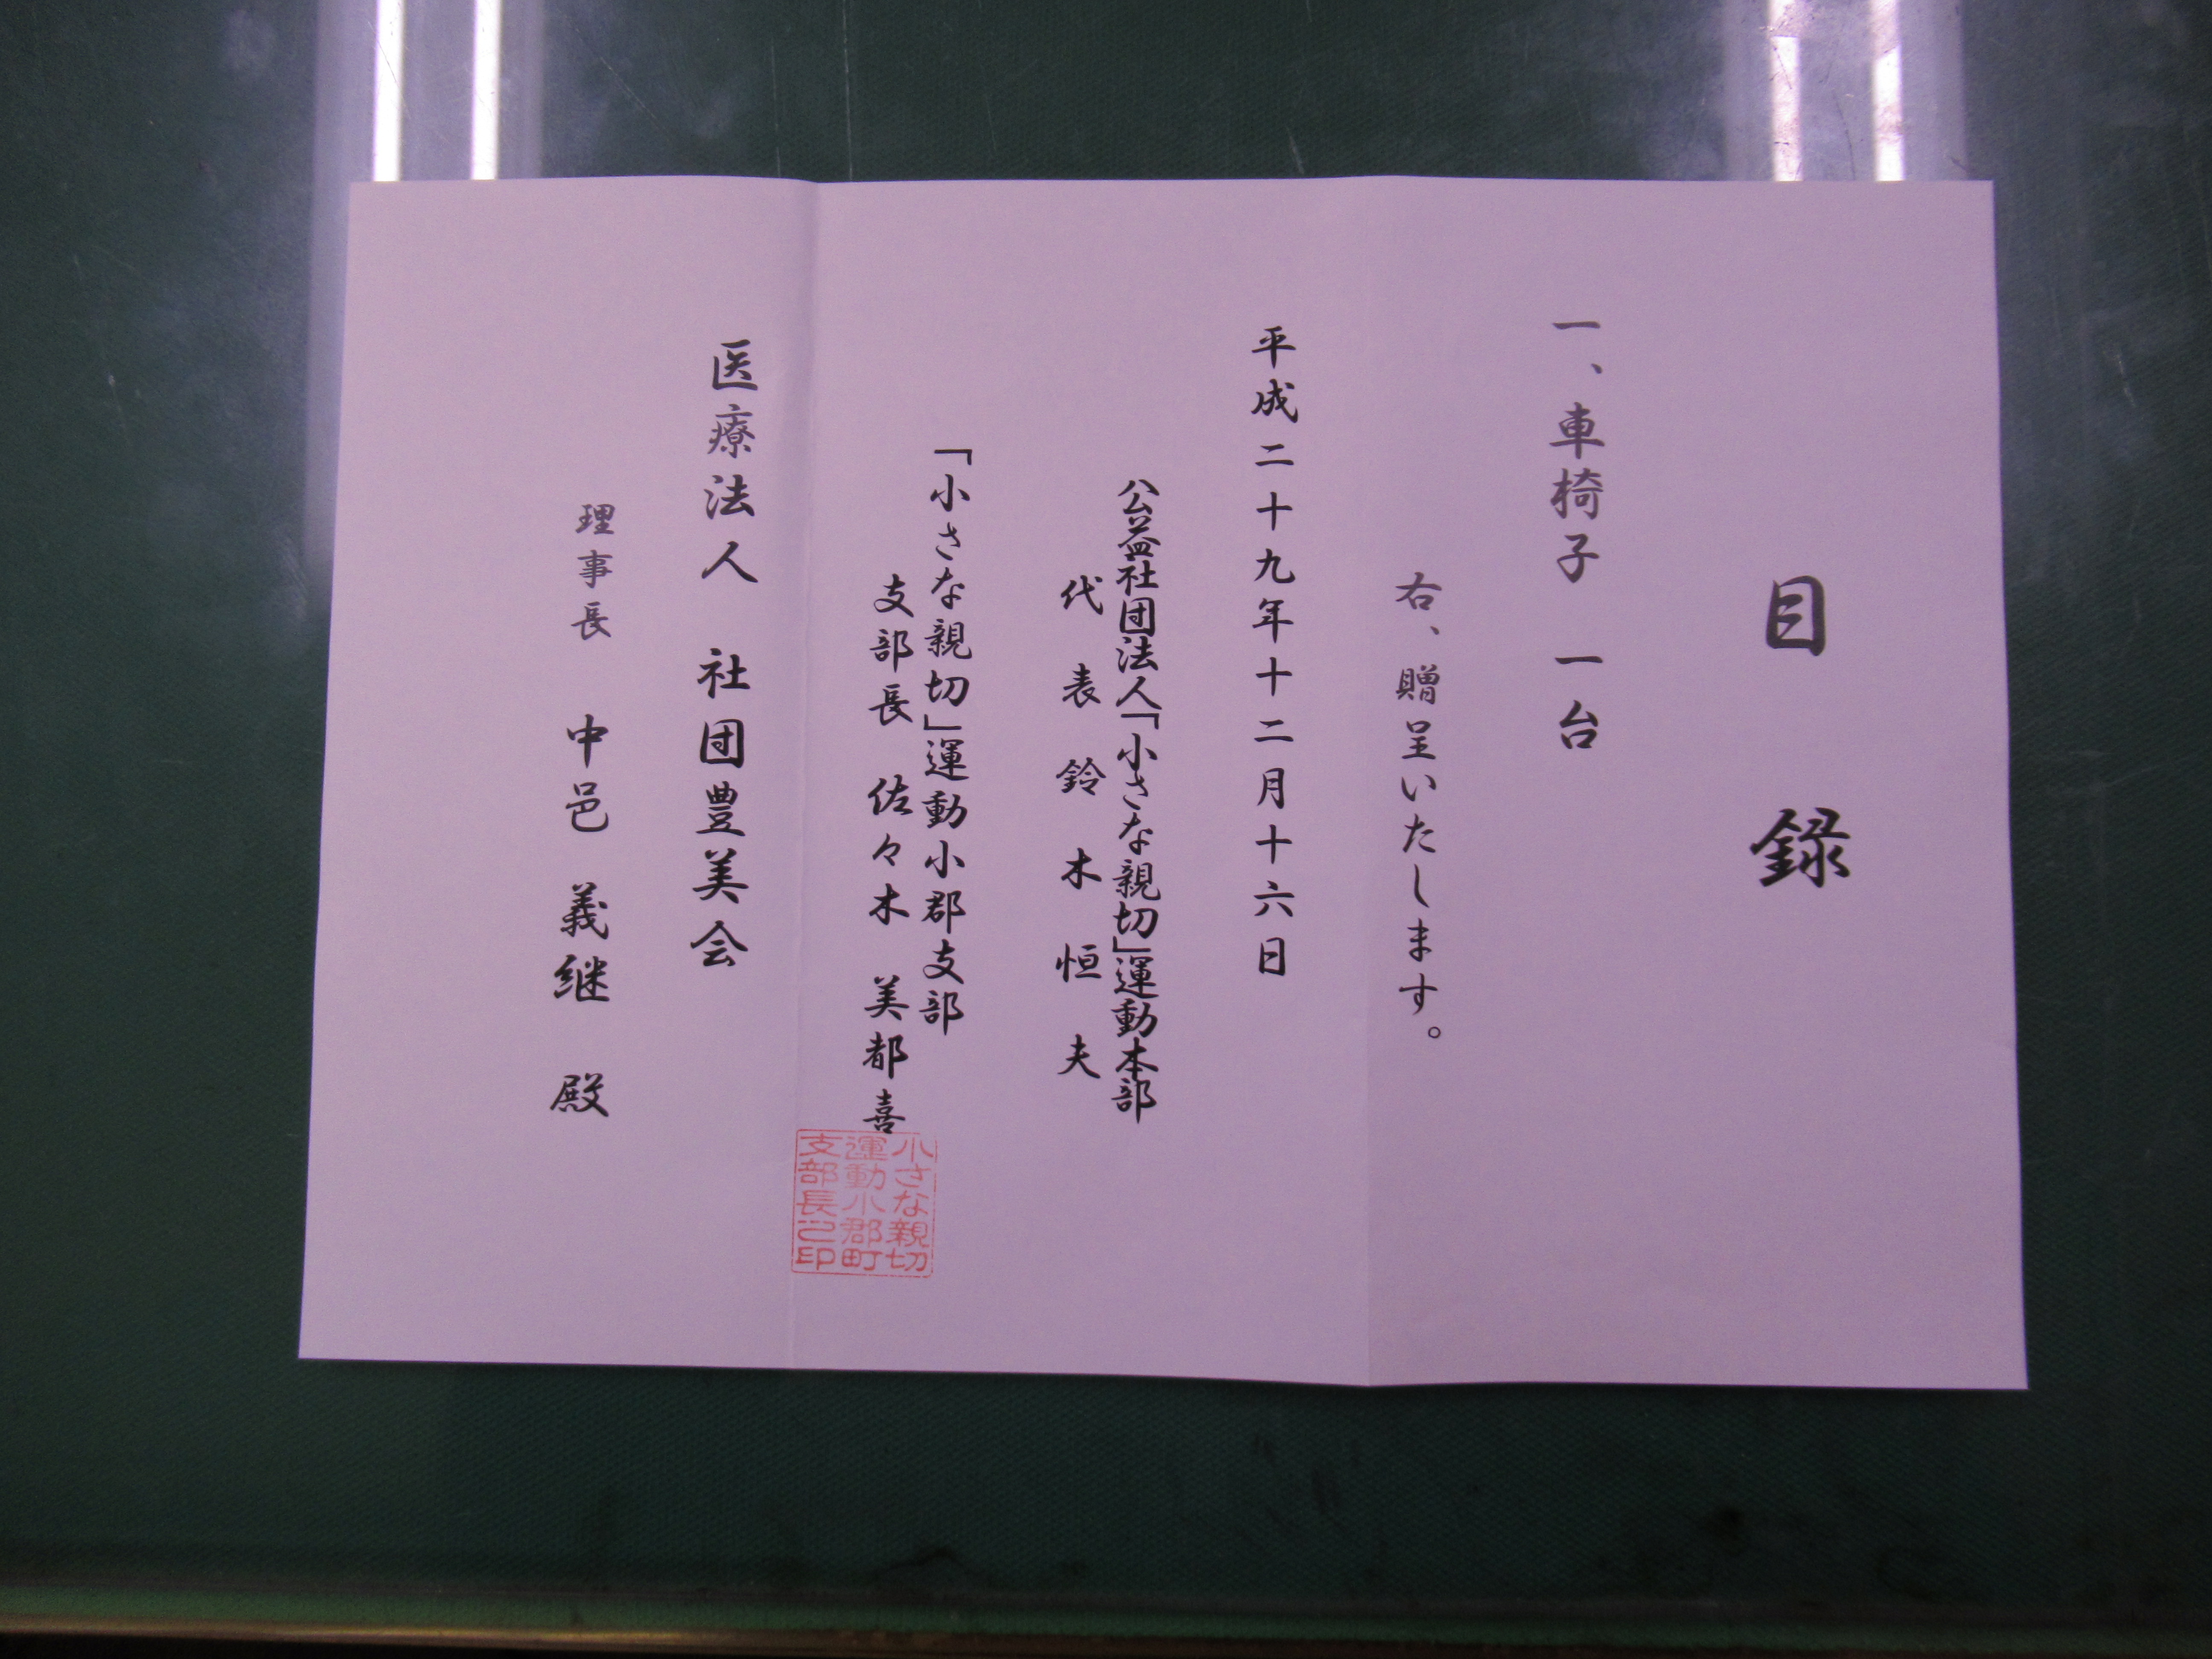 目録
一、車椅子 一台
右、贈呈いたします。
平成二十九年十二月十六日
公益社団法人「小さな親切」運動本部
代表 鈴木恒夫
「小さな親切」運動小郡支部
支部長 佐々木 美都喜
小さな親切
運動小郡町
支部長之印
医療法人 社団豊美会
理事長 中邑 義継 殿